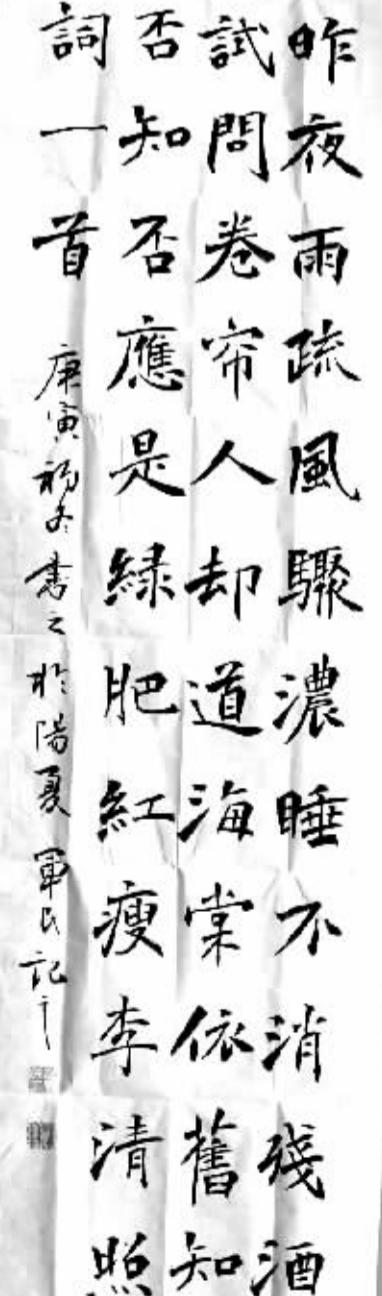 昨夜雨疏風驟濃睡不消殘酒
試問卷帘人却道海棠依舊知
否知否應是緑肥紅瘦李清照
詞一首
庚寅初冬書之於陽夏軍民記